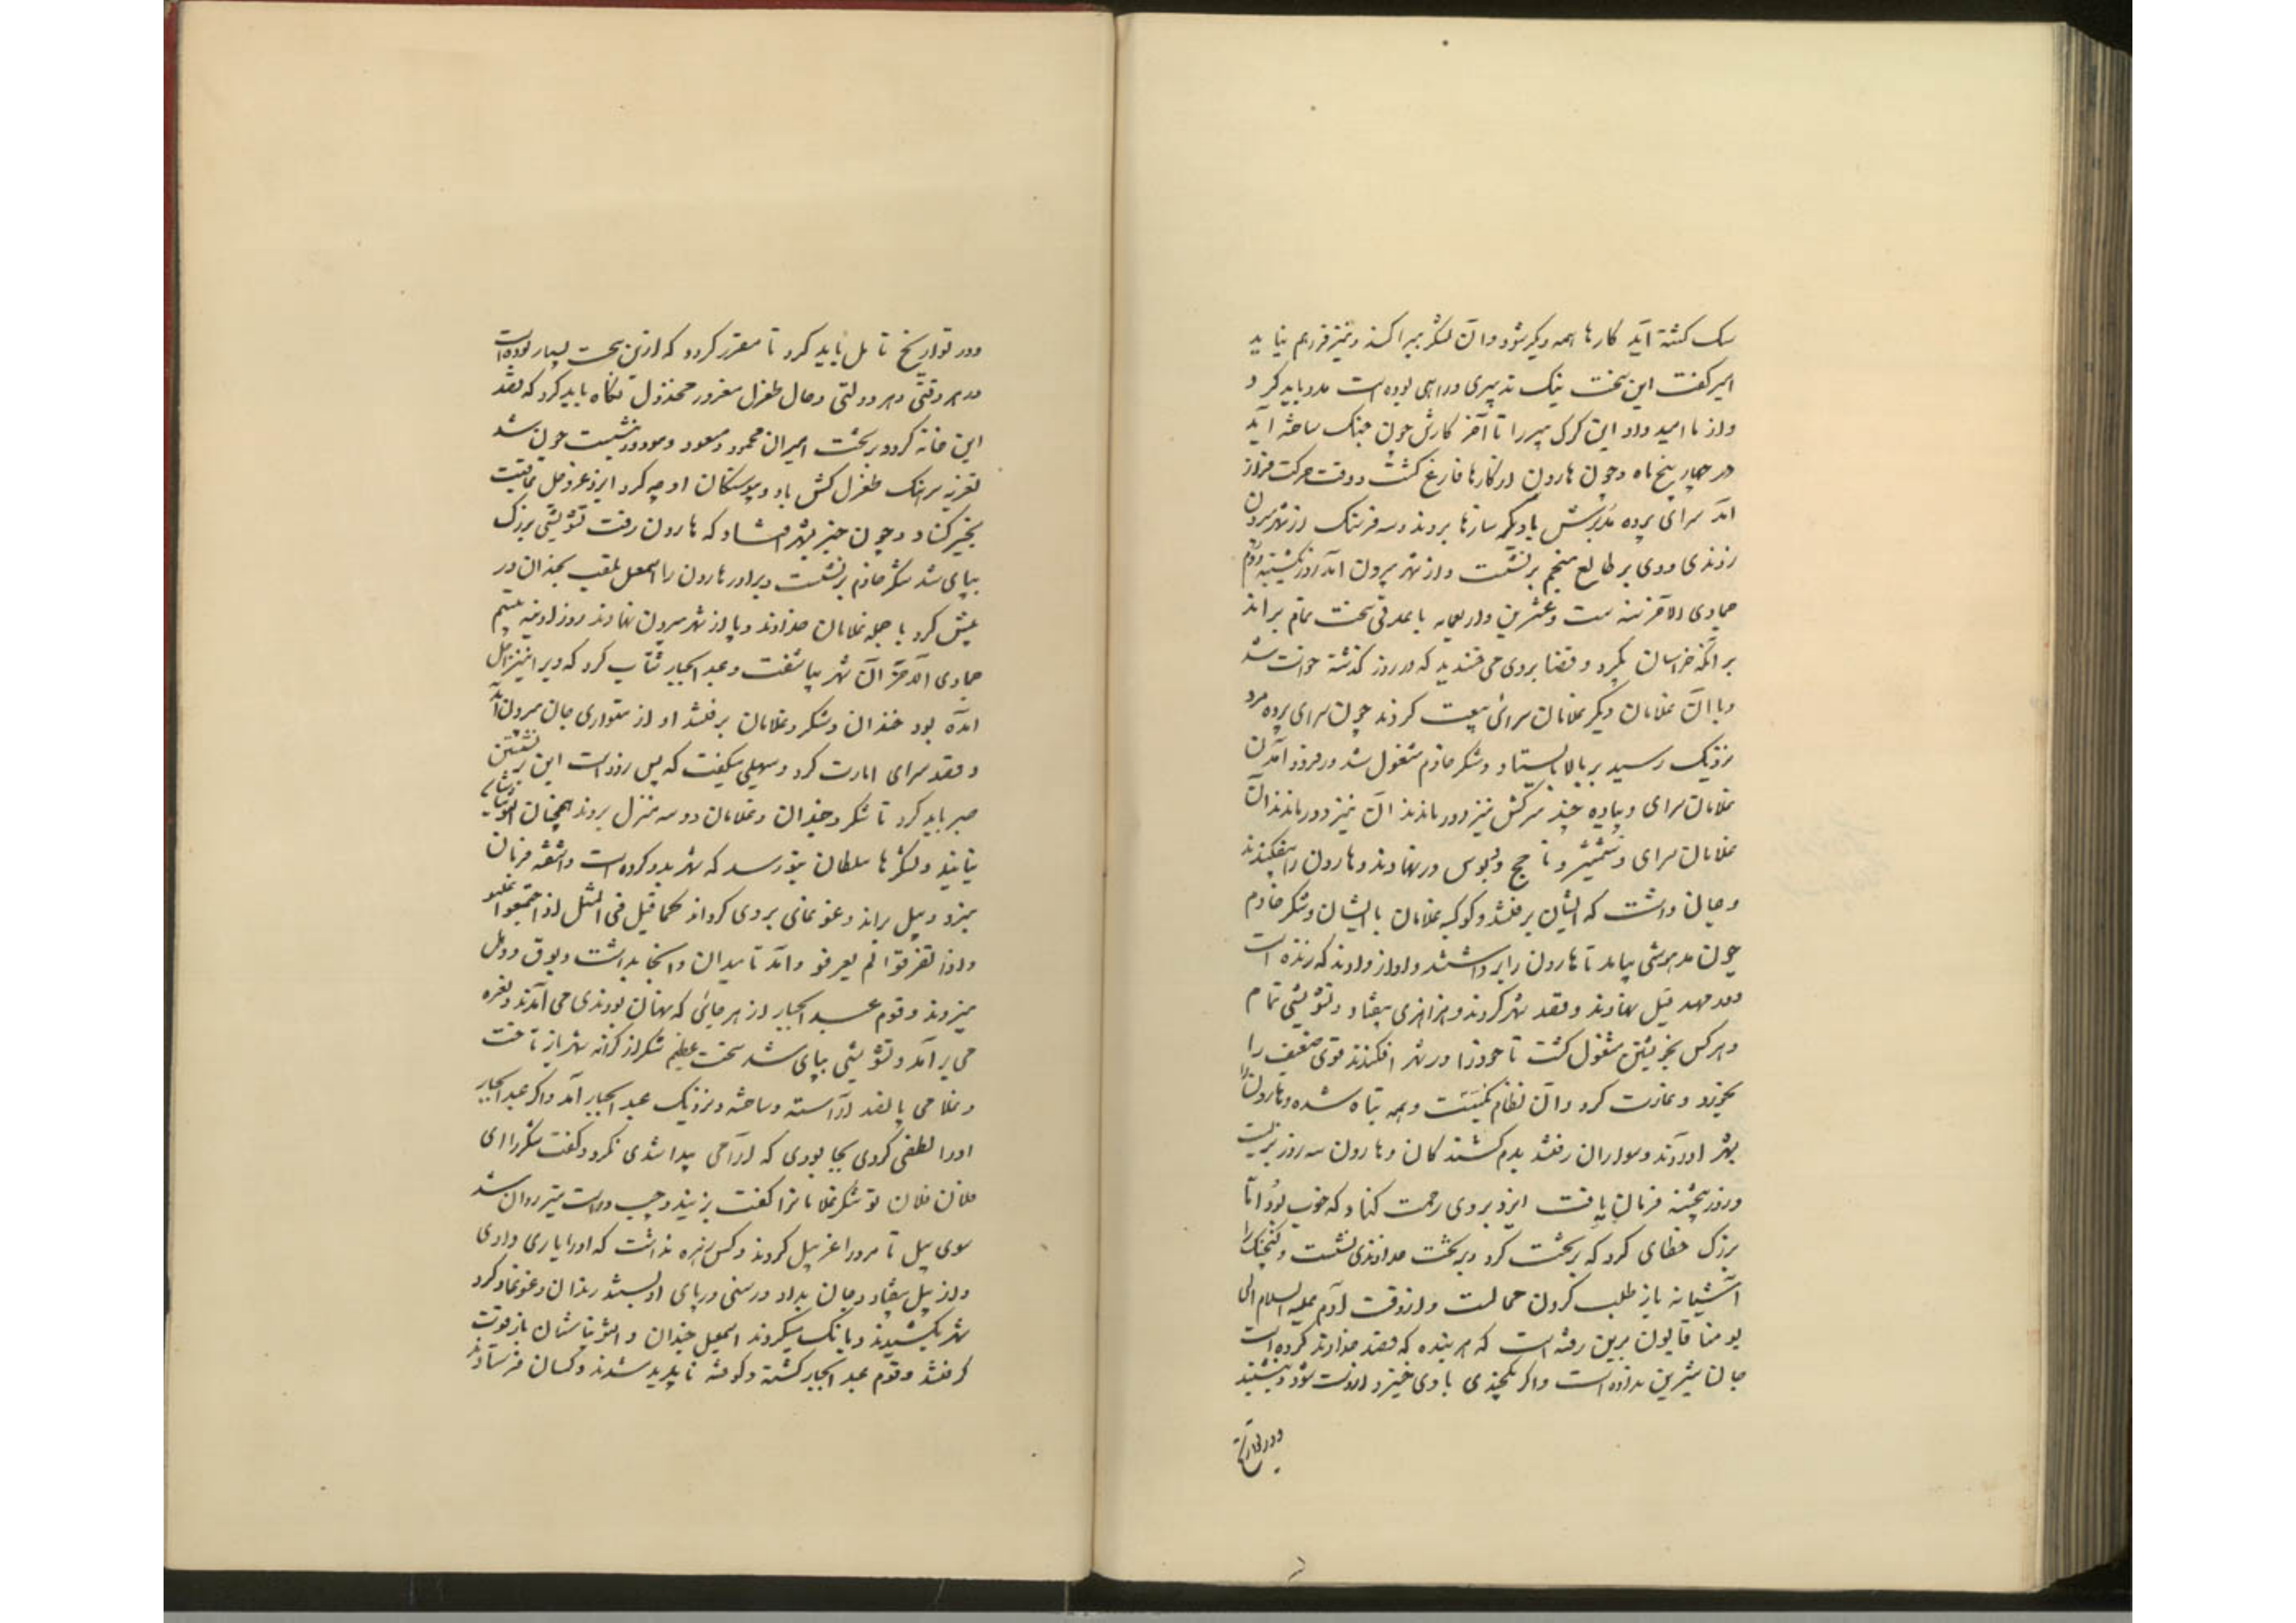 سک کشته آید کارها همه دیگر شود و آن لشکر بپراکند و نیز فراهم نیاید
امیر گفت این سخت نیک تدبیری و راهی بوده است مدد باید کرد و
و از ما امید داد این کرک پیر را تا آخر کارش چون جنک ساخته آید
در چهار پنج ماه و چون هارون از کارها فارغ گشت و وقت حرکت فراز
آمد سرای پرده بزرکش با دیگر سازها بردند و سه فرسنک از شهر بیرون
زدندی و وی بر طالع منجم برنشست و از شهر بیرون آمد روز یکشنبه دوم
جمادی الآخر سنه ست و عشرین و اربعمایه با عدتی سخت تمام براند
بر آنکه خراسان بگیرد و قضا بر وی می خندید که در روز گذشته خواست شد
و با آن غلامان دیگر غلامان سرائی بیعت کردند چون سرای پرده مرد
نزدیک رسید بر بالا بایستاد و شکر خادم مشغول شد در فرود آمدن
غلامان سرای و پیاده چند سرکش نیز دور ماندند آن نیز دور ماندند آن
غلامان سرای و شمشیر و ناچخ و دبوس درنهادند و هارون را بیفکندند
و جان داشت که ایشان برفتند و کوکبه غلامان با ایشان و شکر خادم
چون مدهوشی بیامد تا هارون را برداشتند و آواز دادند که زنده است
و در مهد فیل نهادند و قصد شهر کردند و هزاهزی بیفتاد و تشویشی تمام
و هر کس بخویشتن مشغول گشت تا خود را در شهر افکندند قوی ضعیف را
بخورد و غارت کرد و آن نظام بکسست و همه تباه شده و هارون را
بشهر آوردند و سواران رفتند بدم کشندگان و هارون سه روز بزیست
و روز پنجشنبه فرمان یافت ایزد بر وی رحمت کناد که خوب بود اما
بزرک خطای کرد که بر تخت کرد و بر تخت خداوندی نشست و گنجشک را
آشیانه باز طلب کردن محالست و از وقت آدم علیه السلام الی
یومنا قانون برین رفته است که هر بنده که قصد خداوند کرده است
جان شیرین بداده است و اگر یکچندی بادی خیزد از دست شود و بنشیند
و در تواریخ
و در تواریخ تامل باید کرد تا مقرر گردد که ازین سخت بسیار بوده است
در هر وقتی و هر دولتی و حال طغرل مغرور مخذول نگاه باید کرد که قصد
این خانه کرد و بر تخت امیران محمود و مسعود و مودود بنشست چون شد
لغزنه سرهنک طغرل کش باو و پیوستگان او چه کرد ایزد عز و جل عاقبت
بخیر کناد و چون خبر بشهر افتاد که هارون رفت تشویشی بزرک
بپای شد شکر خادم برنشست و برادر هارون را اسمعیل ملقب بخندان در
پیش کرد با جمله غلامان خداوند و پا از شهر بیرون نهادند روز آدینه بیستم
جمادی الآخر آن شهر بیاشفت و عبد الجبار شتاب کرد که ویرا نیز اجل
آمده بود خندان و شکر و غلامان برفتند او از متواری جان بیرون آمد
و قصد سرای امارت کرد و سهیلی میگفت که پس زود است این برنشستن
صبر باید کرد تا شکر و خندان و غلامان دو سه منزل بروند همچنان آلتونتاشی
بیایند و لشکرها سلطان بتو رسد که شهر بدو گروه است و آشفته فرمان
نبرد و پیل براند و غوغائی بر وی گرد آمد کما قیل فی المثل اذا اجتمعوا غلبوا
و اذا تفرقوا لم یعرفو و آمد تا میدان و آنجا بداشت و بوق و دهل
میزدند و قوم عبد الجبار از هر جائی که پنهان بودندی می آمدند و نعره
می برآمد و تشویشی بپای شد سخت عظیم شکر از کرانه شهر باز تاخت
و غلامی پانصد آراسته و ساخته و نزدیک عبد الجبار آمد و اگر عبد الجبار
او را لطفی کردی بجا بودی که آرامی پیدا شدی نکرد و گفت شکر را ای
فلان فلان تو شکر غلامانرا گفت بزنید و چپ و راست تیر روان شد
سوی پیل تا مرد را غربیل کردند و کس زهره نداشت که او را یاری دادی
و از پیل بیفتاد و جان بداد و رسنی در پای او بستند رندان و غوغا و گرد
شهر بکشیدند و بانک میکردند اسمعیل خندان و آلتونتاشان باز قوت
گرفتند و قوم عبد الجبار کشته و کوفته ناپدید شدند و کسان فرستادند